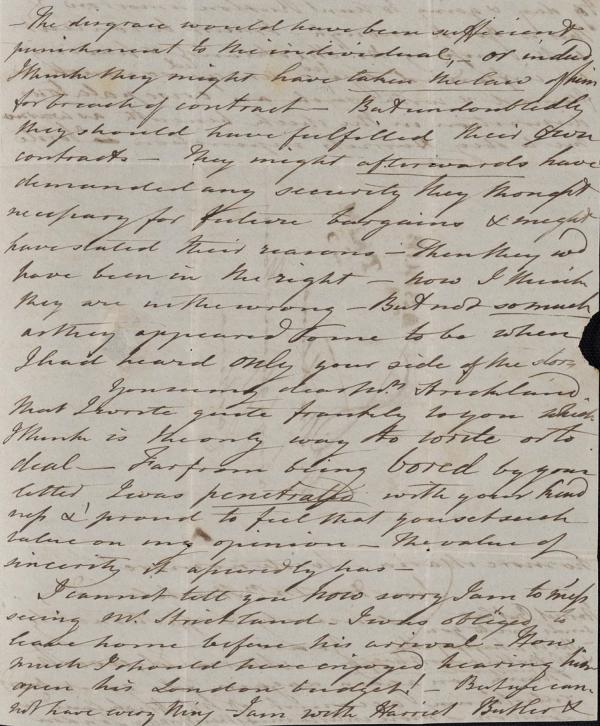 – The disgrace would have been sufficient
punishment to the individual, – or indeed
I think they might have taken the law of him
for breach of contract – But undoubtedly
they should have fulfilled their own
contracts – They might afterwards have
demanded any security they thought
necessary for future bargains & might
have stated their reasons – Then they wd
have been in the right – now I think
they are in the wrong – But not so much
as they appeared to me to be when
I had heard only your side of the story
You see my dear Mrs Strickland
that I wrote quite frankly to you which
I think is the only way to write or to
deal – Far from being bored by your
letter I was penetrated with your kind
ness & proud to feel that you set such
value on my opinion – The value of
sincerity it assuredly has –
I cannot tell you how sorry I am to miss
seeing Mr. Strickland – I was obliged to
leave home before his arrival – How
much I should have enjoyed hearing him
open his London budget! – But we can
not have every thing – I am with Harriet Butler &